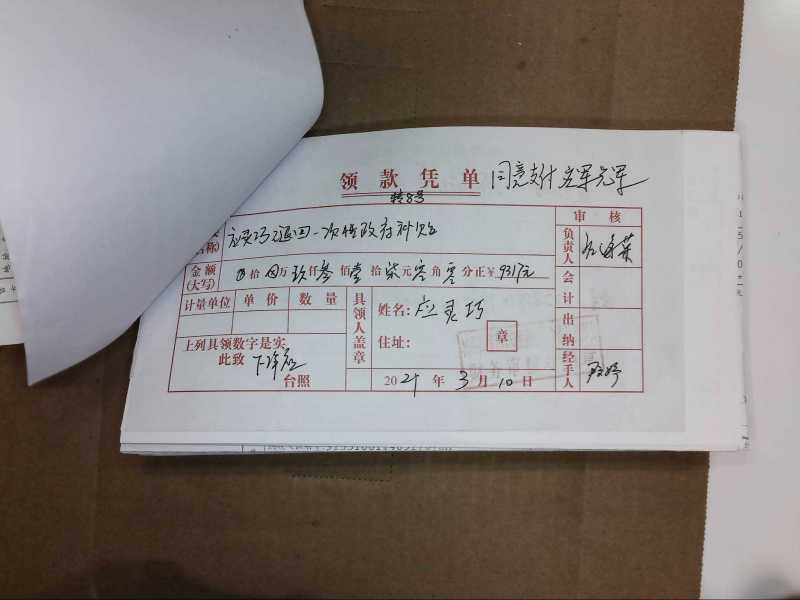 领款凭单 同意支付
转8号
审核
名称) 应灵巧退回一次性政府补贴
负责人
金额(大写) 拾 万玖仟叁佰壹拾柒元零角零分正¥9317元
会计
计量单位 单价 数量 具领人盖章 姓名:应灵巧
章
出纳
住址:
上列具领数字是实
此致
台照
2021年3月10日
经手人